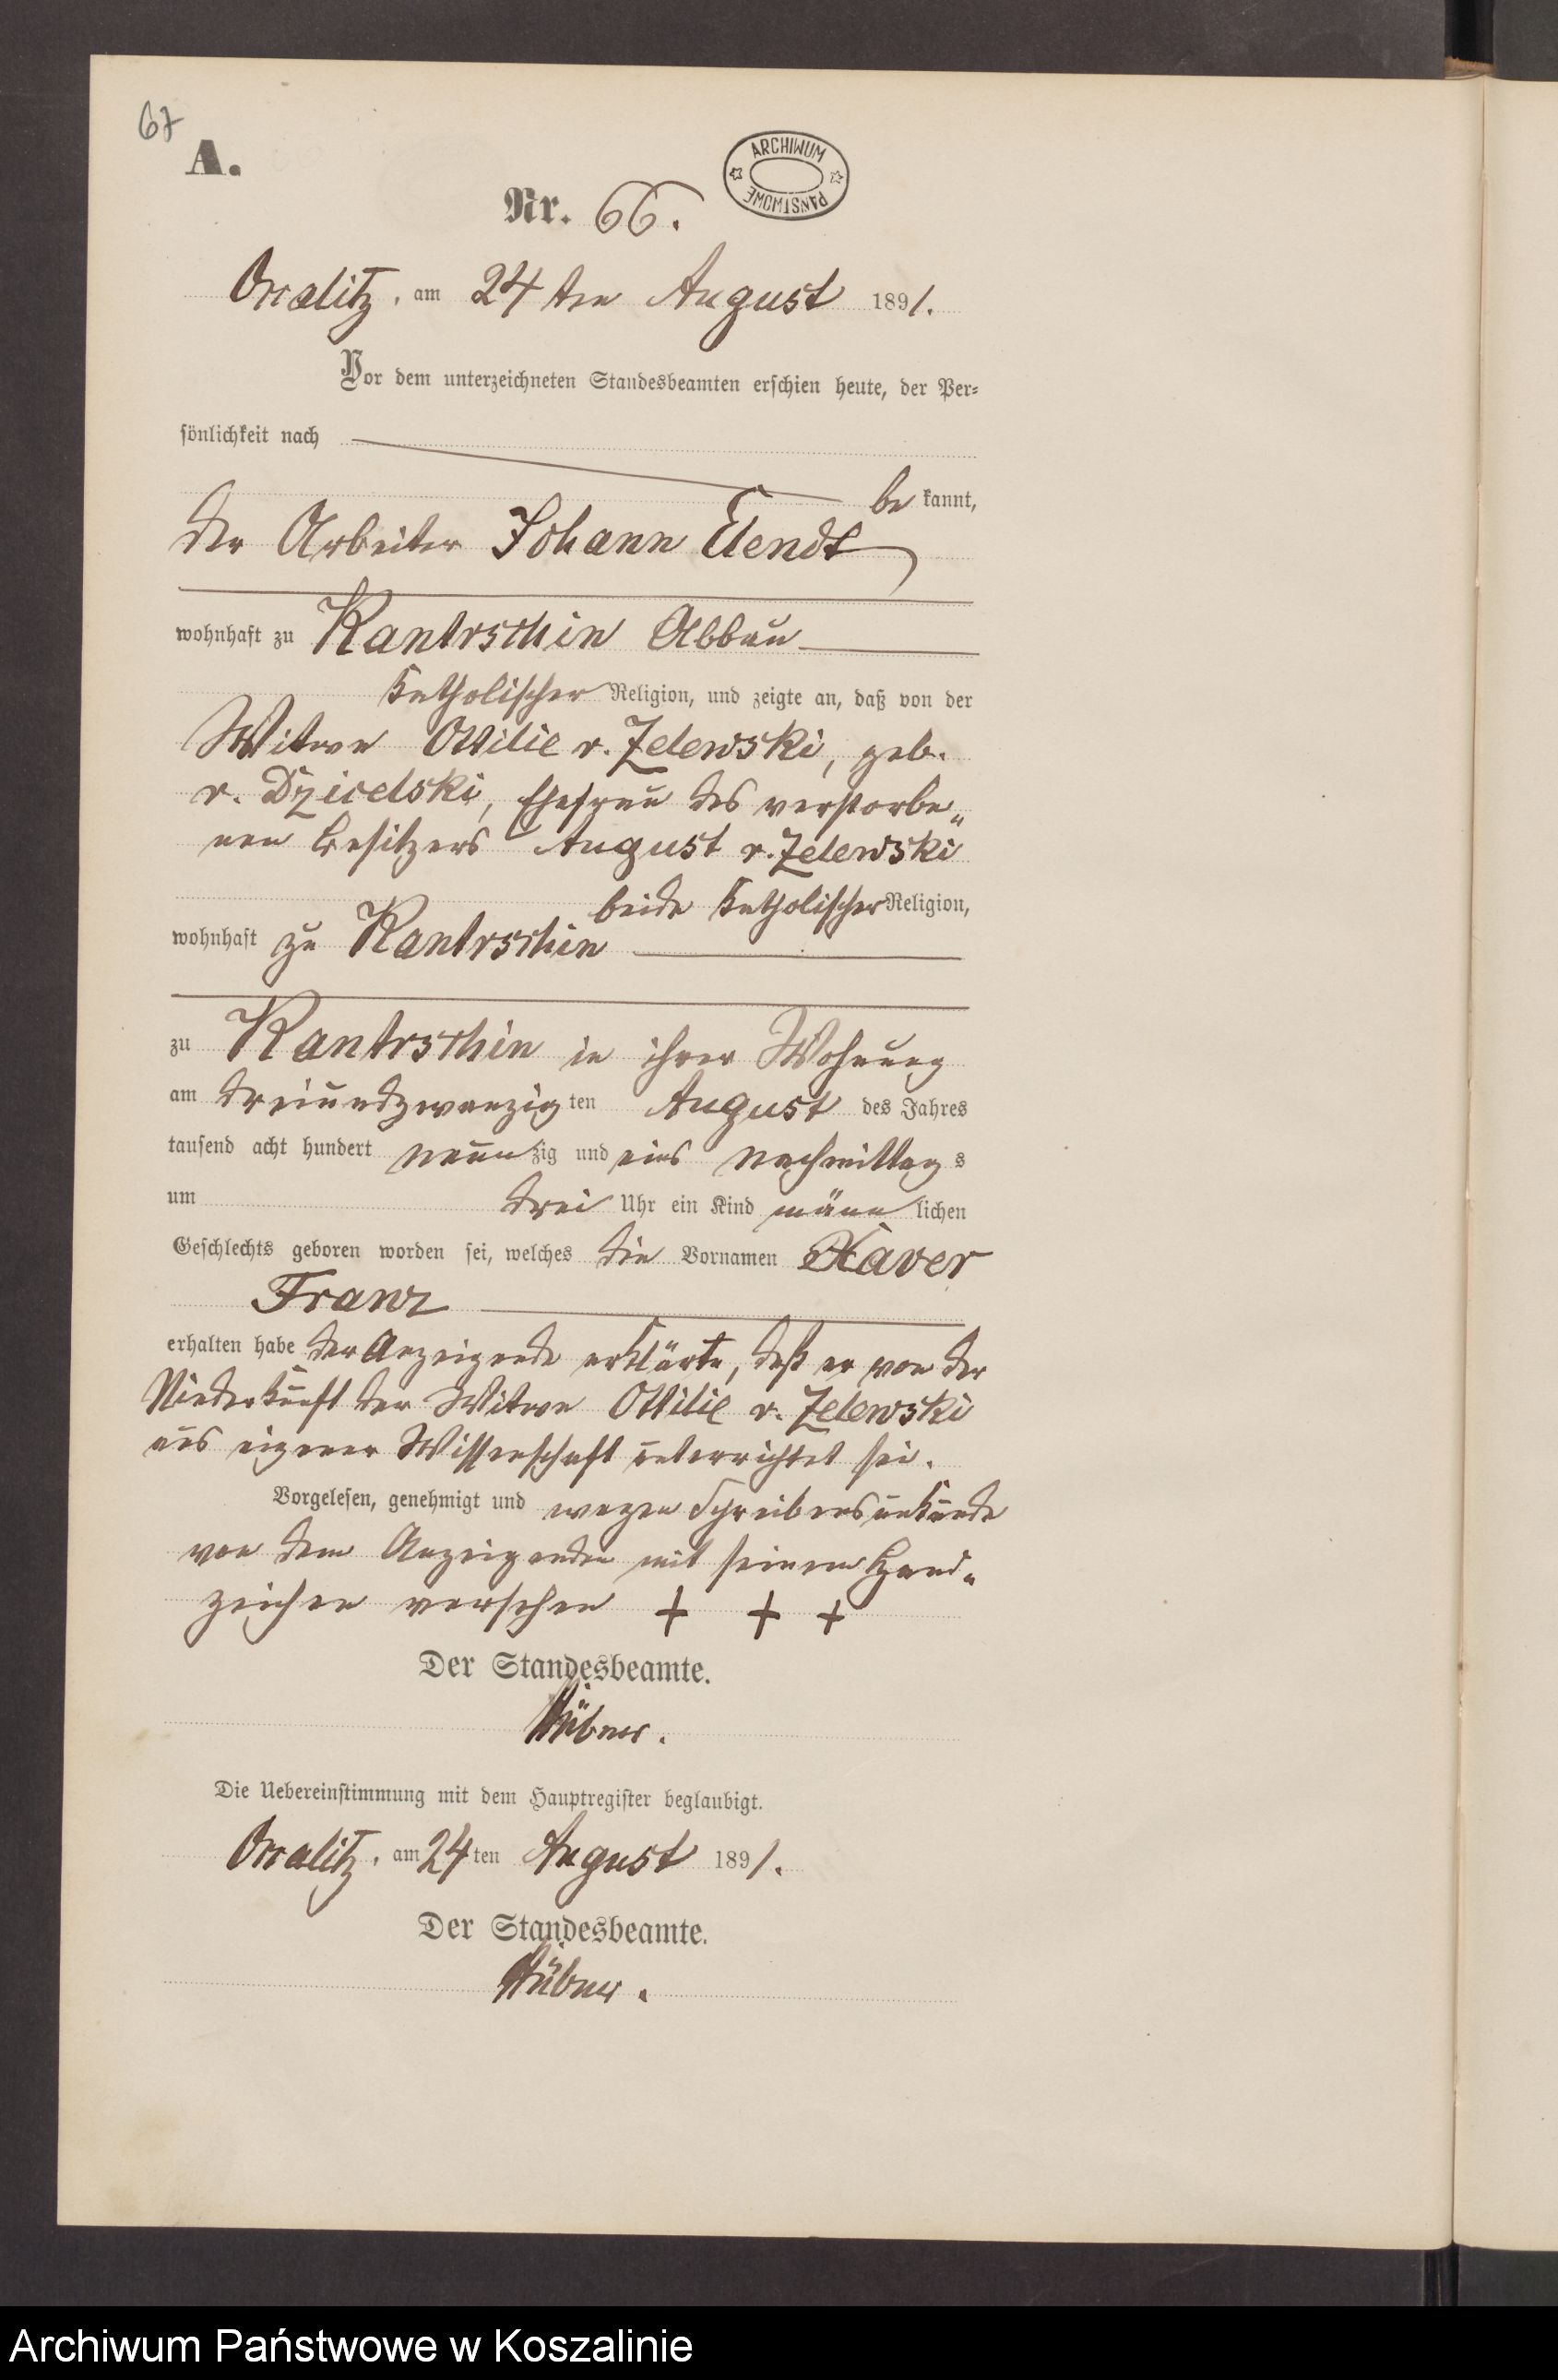 67
A.
ARCHIWUM PAŃSTWOWE
Nr. 66.
Occalitz, am 24 ten August 1891.
Vor dem unterzeichneten Standesbeamten erschien heute, der Per-
sönlichkeit nach
be kannt,
der Arbeiter Johann Elendt
wohnhaft zu Kantrschin Abbau
katholischer Religion, und zeigte an, daß von der
Witwe Ottilie v. Zelewski, geb.
v. Dzicelski, Ehefrau des verstorbe„
nen Besitzers August v. Zelewski
beide katholischer Religion,
wohnhaft zu Kantrschin
zu Kantrschin in ihrer Wohnung
am dreiundzwanzig ten August des Jahres
tausend acht hundert neun zig und eins Nachmittag s
um drei Uhr ein Kind männ lichen
Geschlechts geboren worden sei, welches die Vornamen Xaver
Franz
erhalten habe der Anzeigende erklärte, daß er von der
Niederkunft der Witwe Ottilie v. Zelewski
aus eigener Wissenschaft unterrichtet sei.
Vorgelesen, genehmigt und wegen Schreibensunkunde
von dem Anzeigenden mit seinem Hand„
zeichen versehen + + +
Der Standesbeamte.
Hübner.
Die Uebereinstimmung mit dem Hauptregister beglaubigt.
Occalitz, am 24 ten August 1891.
Der Standesbeamte.
Hübner.
Archiwum Państwowe w Koszalinie